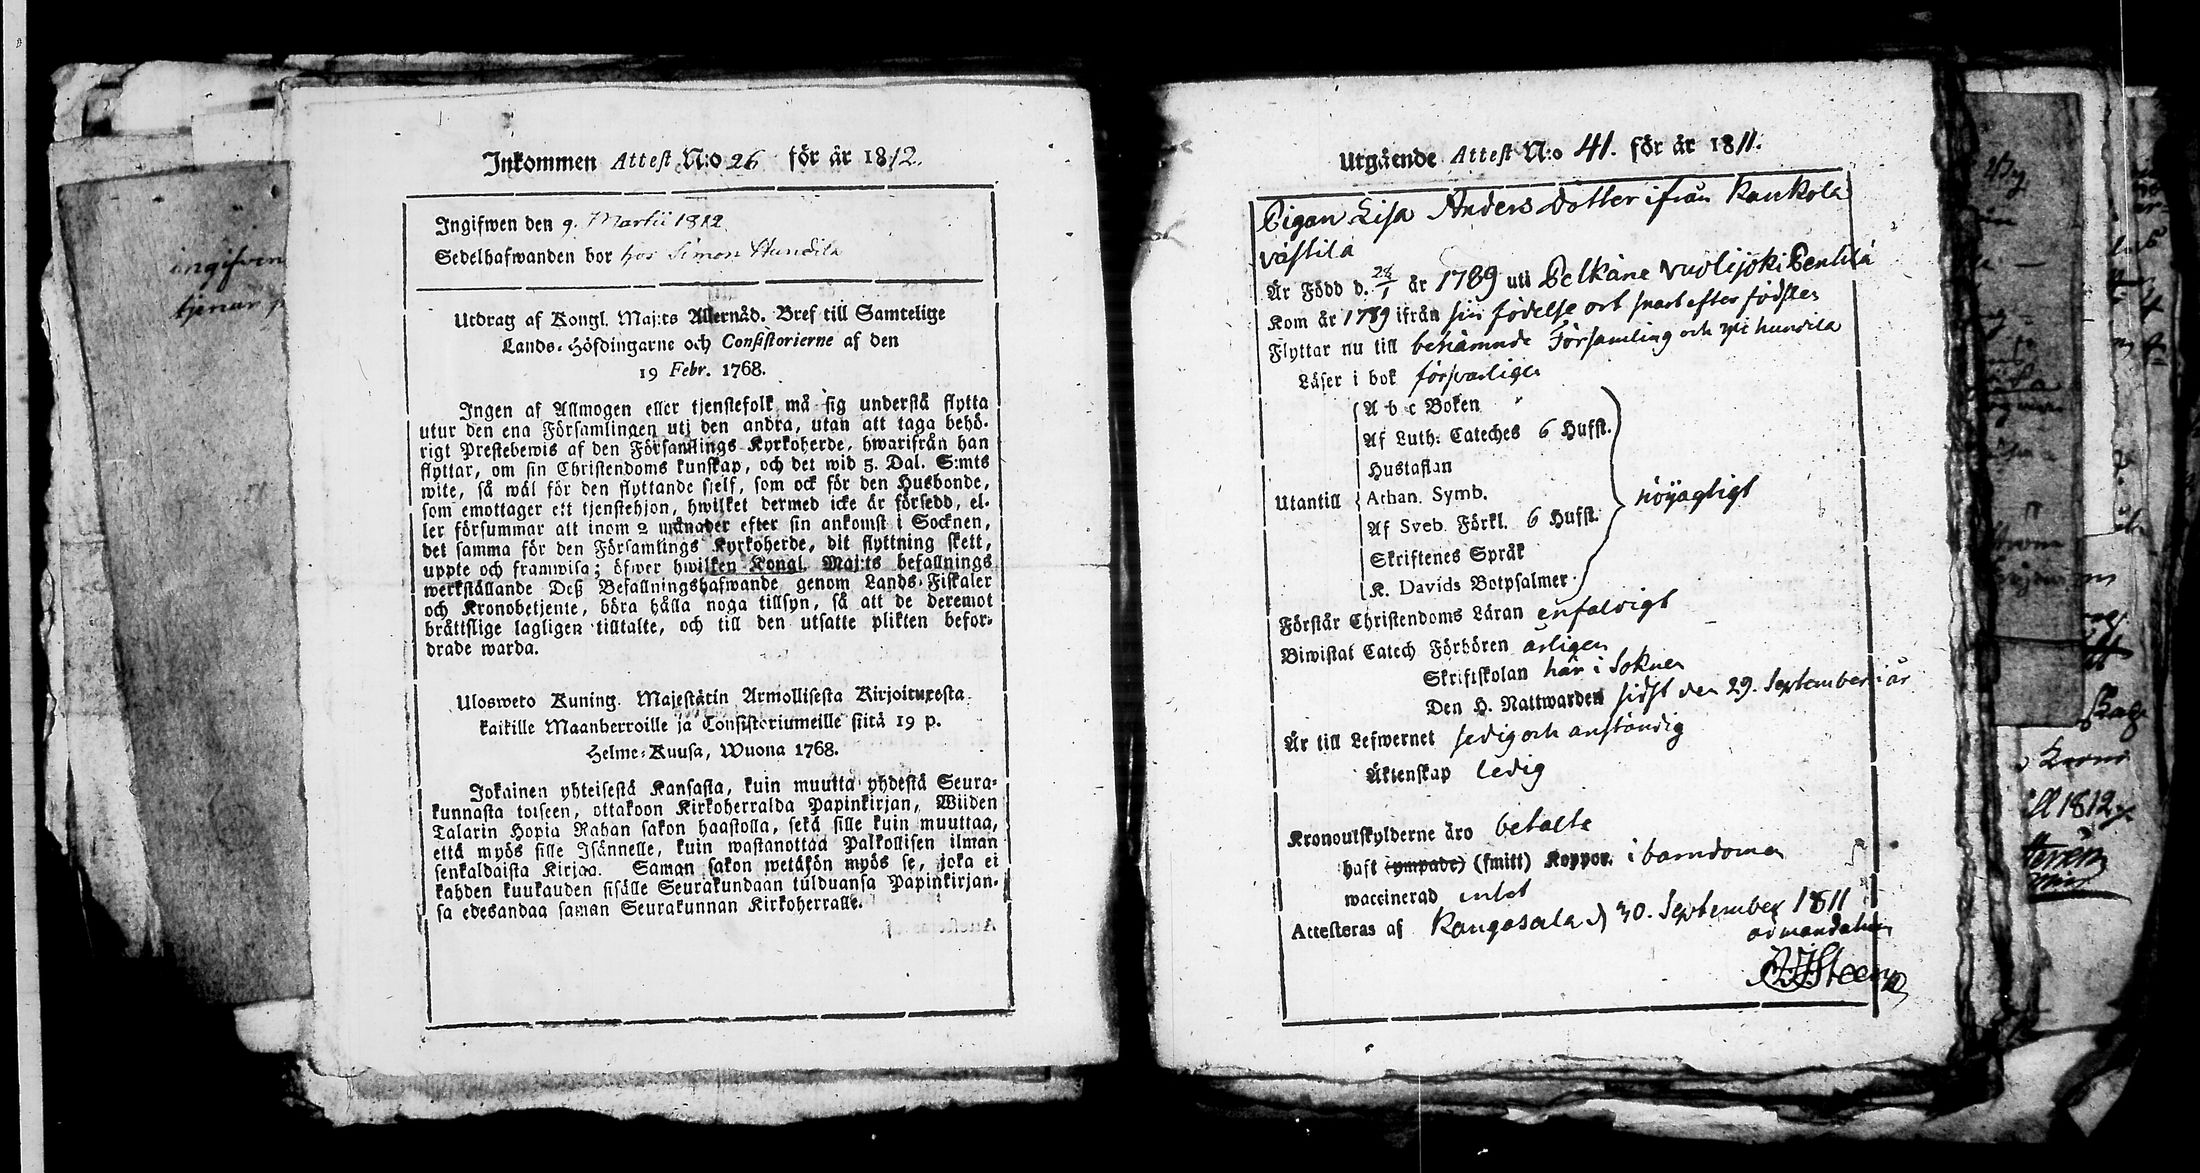 Inkommen Attest N:o 26 för år 1812.
Ingifwen den 9. Martii 1812
Sedelhafwanden bor hos Simon Hundila
Utdrag af Kongl. Maj:ts Allernåd. Bref till Samtelige
Lands-Höfdingarne och Consistorierne af den
19 Febr. 1768.
Ingen af Allmogen eller tjenstefolk må sig understå flytta
utur den ena Församlingen utj den andra, utan att taga behö-
rigt Prestebewis af den Församlings Kyrkoherde, hwarifrån han
flyttar, om sin Christendoms kunskap, och det wid 5. Dal. S:mts
wite, så wäl för den flyttande sjelf, som ock för den Husbonde,
som emottager ett tjenstehjon, hwilket dermed icke är försedd, el-
ler försummar att inom 2 månader efter sin ankomst i Socknen,
det samma för den Församlings Kyrkoherde, dit flyttning skett,
uppte och framwisa; öfwer hwilken Kongl. Maj:ts befallnings
werkställande Deß Befallningshafwande genom Lands-Fiskaler
och Kronobetjente, böra hålla noga tillsyn, så att de deremot
bråttslige lagligen tilltalte, och till den utsatte plikten befor-
drade warda.
Ulosweto Kuning. Majestätin Armollisesta Kirjoituxesta
kaikille Maanherroille ja Consistoriumeille siitä 19 p.
Helme-Kuusa, Wuona 1768.
Jokainen yhteisestä Kansasta, kuin muutta yhdestä Seura-
kunnasta toiseen, ottakoon Kirkoherralda Papinkirjan, Wiiden
Talarin Hopia Rahan sakon haastolla, sekä sille kuin muuttaa,
että myös sille Isännelle, kuin wastanottaa Palkollisen ilman
senkaldaista Kirjaa. Saman sakon wetäkön myös se, joka ei
kahden kuukauden sisälle Seurakundaan tulduansa Papinkirjan-
sa edesandaa saman Seurakunnan Kirkoherralle.
Utgående Attest N:o 41. för år 1811.
Pigan Lisa Anders Dotter ifrån Kaukola
Västila
Är Född d. 24/1 år 1789 uti Pelkäne Vuolijoki Penttilä
Kom år 1789 ifrån sin födelse ort snart efter födslen
Flyttar nu till benämnde Församling och Hundila
Läser i bok försvarligen
A b c Boken
Af Luth: Cateches 6 Hufst.
Hustaflan
Utantill Athan. Symb. nöijagtigt
Af Sveb. Förkl. 6 Hufst.
Skriftenes Språk
K. Davids Botpsalmer
Förstår Christendoms Läran enfaldigt
Biwistat Catech Förhören årligen
Skriftskolan här i Soknen
Den H. Nattwarden sidst den 29. September i år
Är till Lefwernet sedig och anständig
Äktenskap ledig
Kronoutskylderne äro betalte
haft (ympade) (smitt) Koppor. i barndomen
waccinerad intet
Attesteras af Kangasala d 30. September 1811
ad mandatum